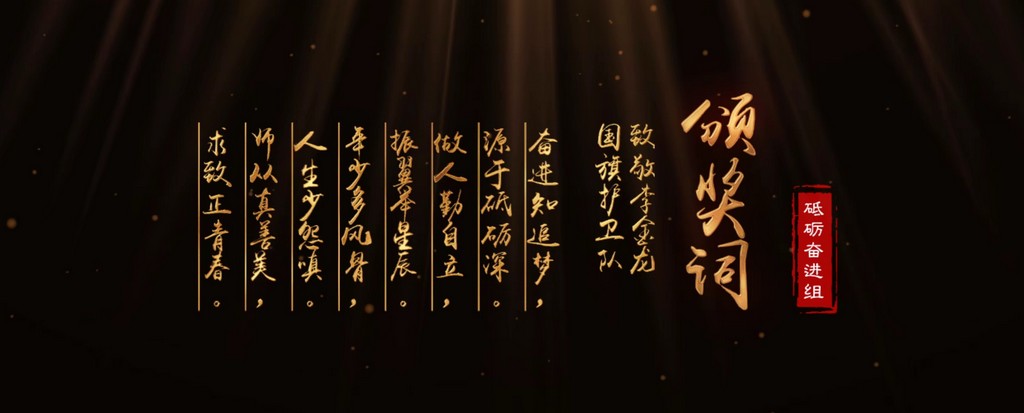 砥砺奋进组
颁奖词
致敬李金龙
国旗护卫队
奋进知追梦，
源于砥砺深。
做人勤自立，
振翼举星辰。
年少多风骨，
人生少怨嗔。
师从真善美，
求致正青春。